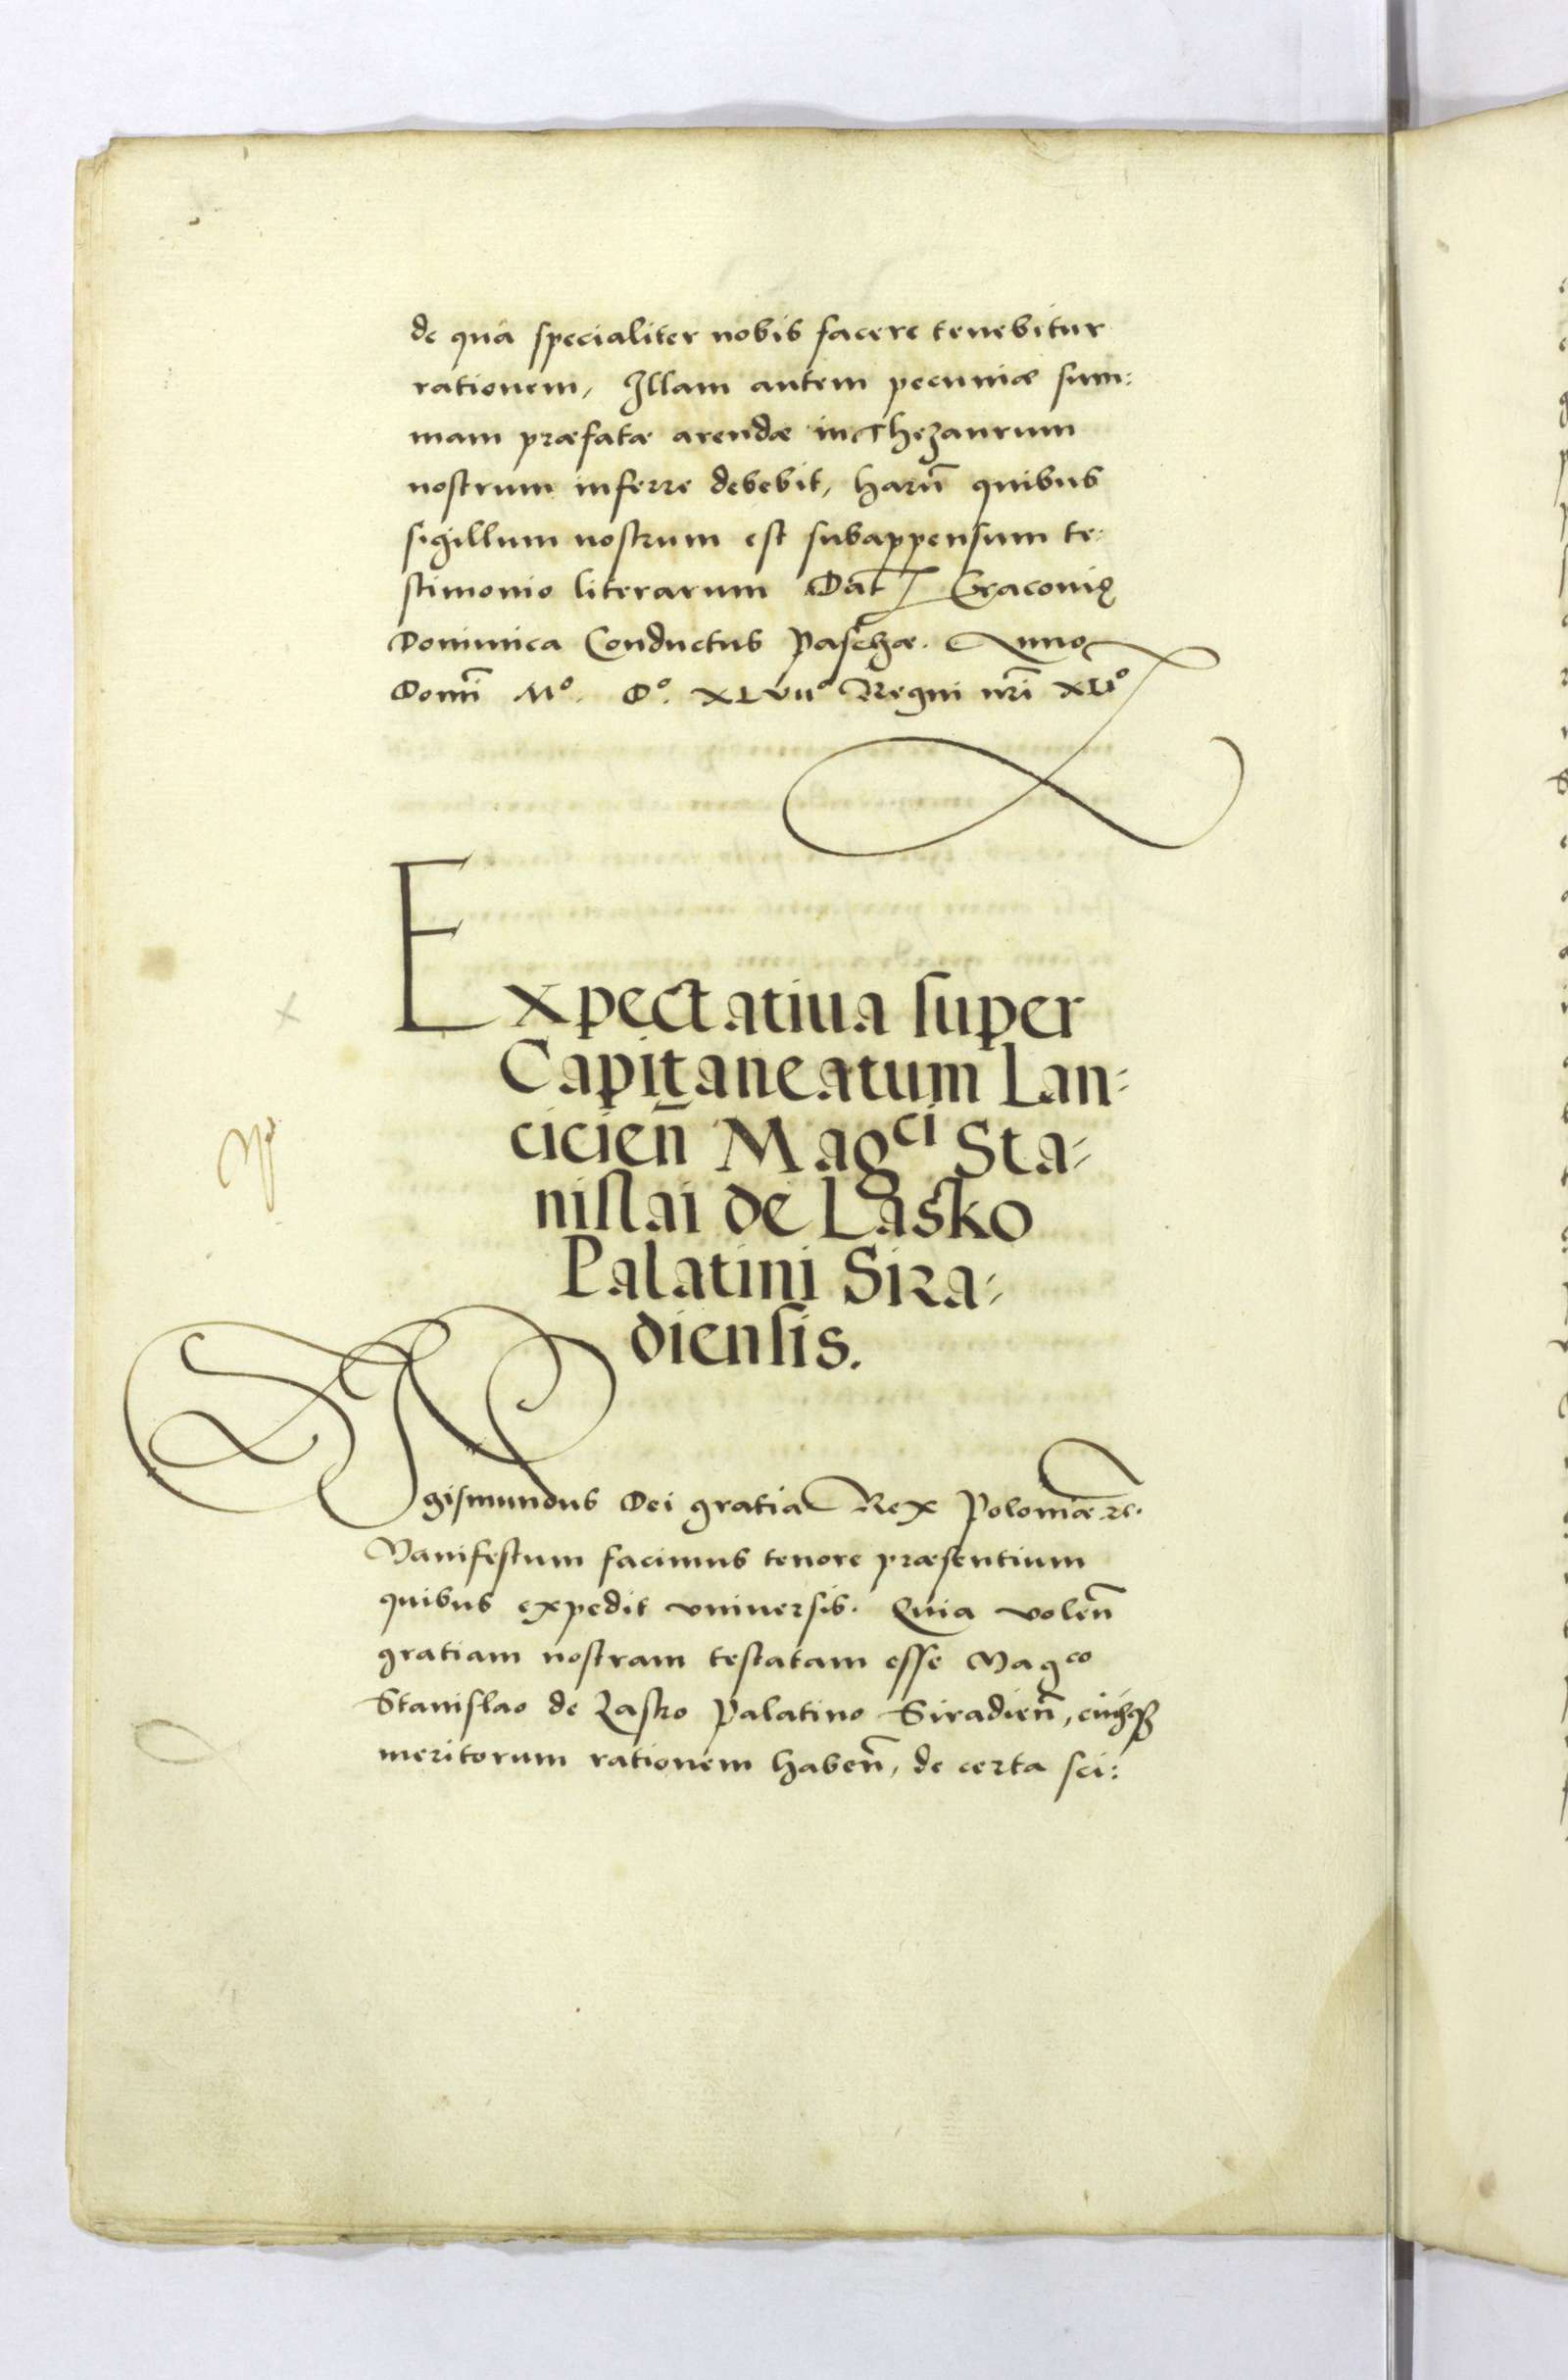 de qua specialiter nobis facere tenebitur
rationem, Illam autem pecuniæ sum:
mam præfatæ arendæ in Thezaurum
nostrum inferre debebit, harũ quibus
sigillum nostrum est subappensum te:
stimonio literarum Dat̃ Cracovię
Dominica Conductus Paschæ. Anno
Domı̃ Mº. Dº. XLVIIº Regni nr̃i XLIº
Expectatiua super
Capitaneatum Lan:
cicień Mag^ci Sta:
nislai de Lasko
Palatini Sira:
diensis.
Sigismundus Dei gratia Rex Poloniæ ꝛc.
Manifestum facimus tenore præsentium
quibus expedit vniuersis. Quia voleñ
gratiam nostram testatam esse Mag^co
Stanislao de Lasko Palatino Siradień,
meritorum rationem habeñ, de certa sci: